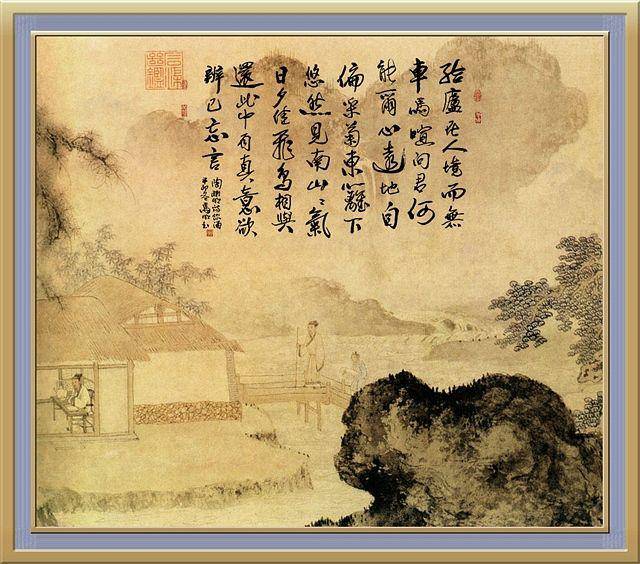 結廬在人境而無
車馬喧問君何
能爾心遠地自
偏采菊東籬下
悠然見南山〻氣
日夕佳飛鳥相與
還此中有真意欲
辨已忘言
陶淵明詩飲酒